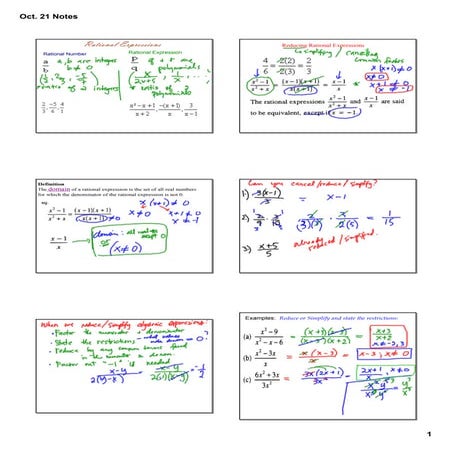 Oct. 21 Notes
Rational Expressions
Rational Number
Rational Expression
a, b are integers
a/b b ≠ 0
p/q
polynomials
ratio of 2 integers
* ratio of 2 polynomials
2/3, -5/4, 4/1
(x²-x+1)/(x+2), -(x+1)/x, 3/(x-1)
Reducing Rational Expressions
simplifying / canceling
common factors
4/6 = 2(2)/2(3) = 2/3
x(x+1) ≠ 0
x ≠ 0
(x²-1)/(x²+x) = (x-1)(x+1)/x(x+1) = (x-1)/x
The rational expressions (x²-1)/(x²+x) and (x-1)/x are said
to be equivalent, except if x = -1.
Definition
The domain of a rational expression is the set of all real numbers
for which the denominator of the rational expression is not 0.
eg.
x(x+1) ≠ 0
(x²-1)/(x²+x) = (x-1)(x+1)/x(x+1) x ≠ 0 x+1 ≠ 0
x ≠ -1
(x-1)/x
domain: all
except 0
(x ≠ 0)
Can you cancel/reduce/simplify?
1) 3(x-1)/3 = x-1
= 1/15
3) (x+5)/5 already reduced/simplified.
When we reduce/simplify algebraic expressions:
• Factor the numerator & denominator
• State the restrictions
• Reduce by any common terms found
in the numerator & denom
• Factor out "-1" if needed
(x-y)/2(y-x) = -1/2
Examples: Reduce or Simplify and state the restrictions:
(a) (x²-9)/(x²-x-6) = (x+3)(x-3)/(x-3)(x+2) = (x+3)/(x+2)
x ≠ -2, 3
(b) (x²-3x)/x = x(x-3)/x = x-3, x ≠ 0
(c) (6x²+3x)/3x² = 3x(2x+1)/3x² = (2x+1)/x, x ≠ 0
1